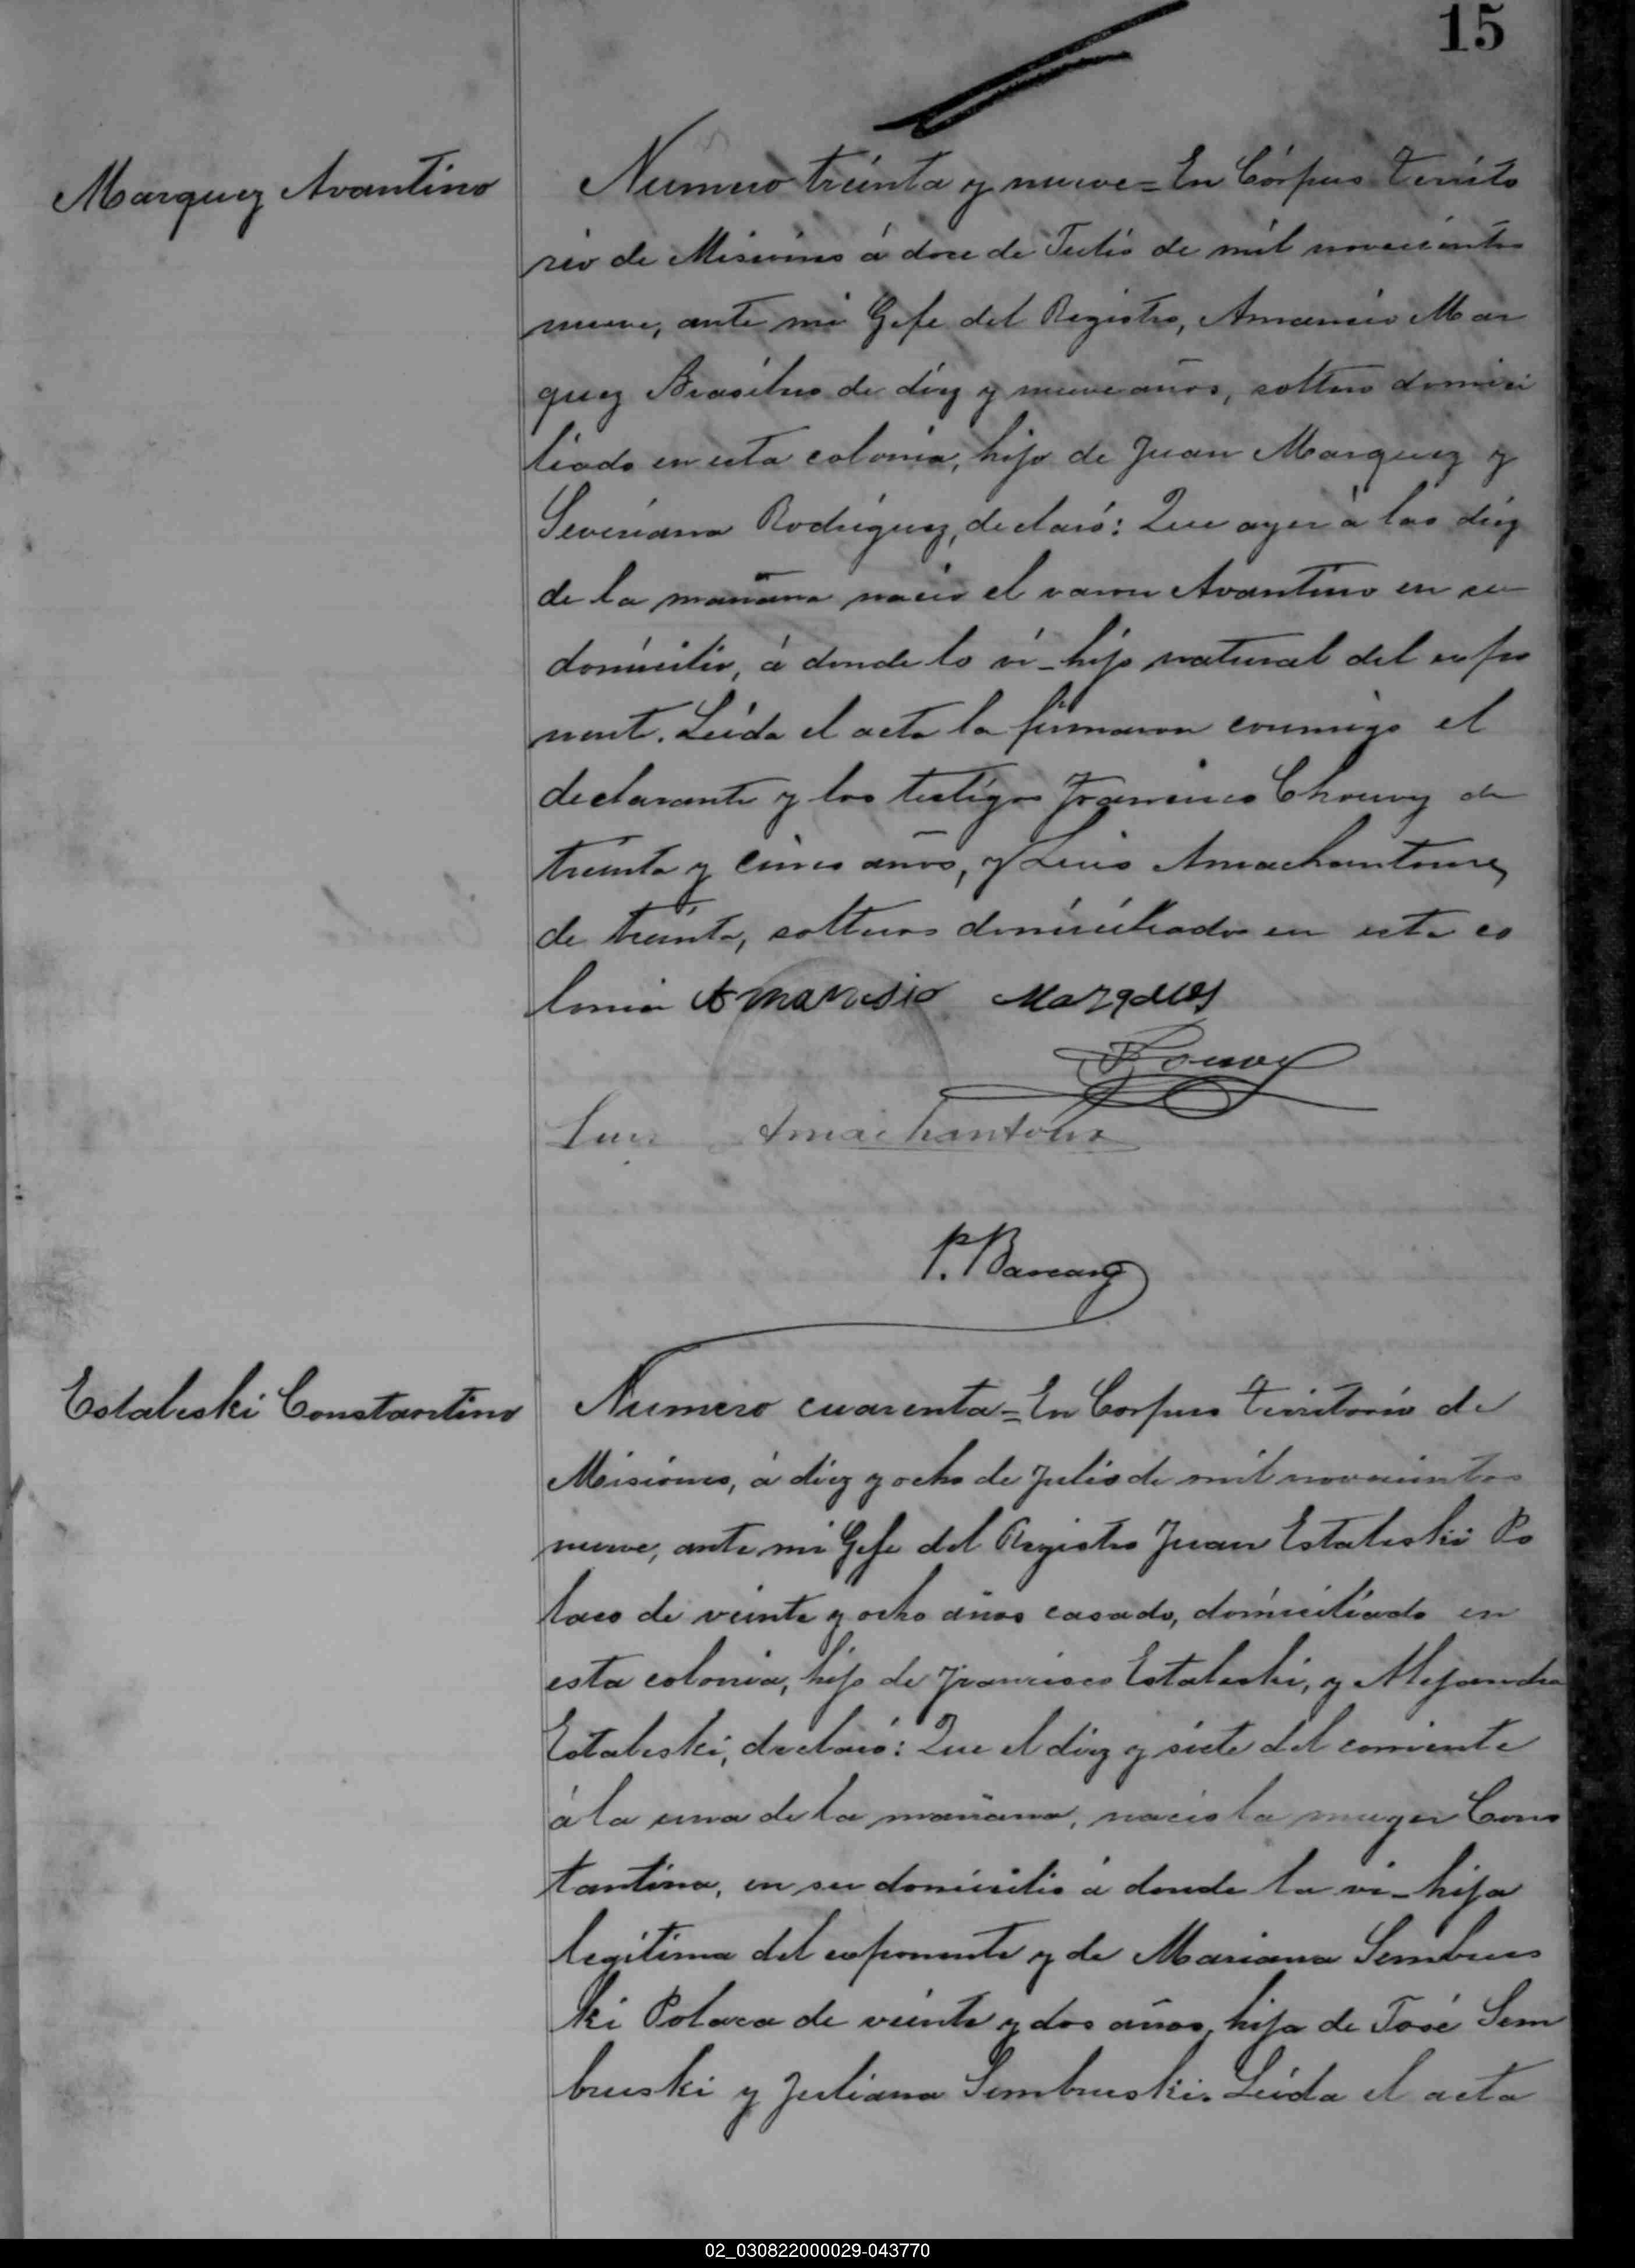 15
Marquez Avantino
Numero treinta y nueve = En Córpus Territo
rio de Misiones á doce de Julio de mil novecientos
nueve, ante mi Gefe del Registro, Amancio Mar
quez Brasilero de diez y nueve años, soltero domici
liado en esta colonia, hijo de Juan Marquez y
Severiana Rodriguez, declaró: Que ayer á las diez
de la mañana nació el varon Avantino en su
domicilio, á donde lo ví - hijo natural del expo
nente. Leida el acta la firmaron conmigo el
declarante y los testigos Francisco Chouvy de
treinta y cinco años, y Luis Amachantoure,
de treinta, solteros domiciliados en esta co
lonia Amansio Marques
Luis Amachantoux
P. Bareary
Estaleski Constantino
Numero cuarenta = En Corpus Territorio de
Misiones, á diez y ocho de Julio de mil novecientos
nueve, ante mi Gefe del Registro Juan Estaleski Po
laco de veinte y ocho años casado, domiciliado en
esta colonia, hijo de Francisco Estaleski, y Alejandra
Estaleski, declaró: Que el diez y siete del corriente
á la una de la mañana, nació la muger Cons
tantina, en su domicilio á donde la ví - hija
legítima del exponente y de Mariana Sembrus
ki Polaca de veinte y dos años, hija de José Sem
bruski y Juliana Sembruski. Leida el acta
02_030822000029-043770